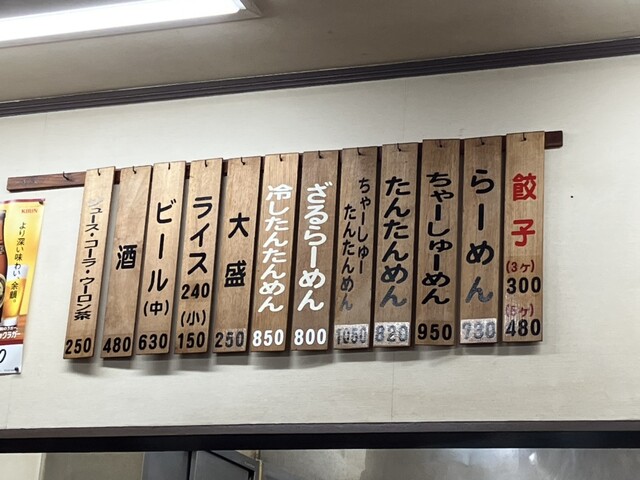 餃子
(3ヶ)
300
(5ヶ)
480
らーめん
730
ちゃーしゅーめん
950
たんたんめん
820
ちゃーしゅー
たんたんめん
1050
ざるらーめん
800
冷したんたんめん
850
大盛
250
ライス
240
(小)
150
ビール(中)
630
酒
480
ジュース・コーラ・ウーロン茶
250
KIRIN
より深い味わい、余韻。